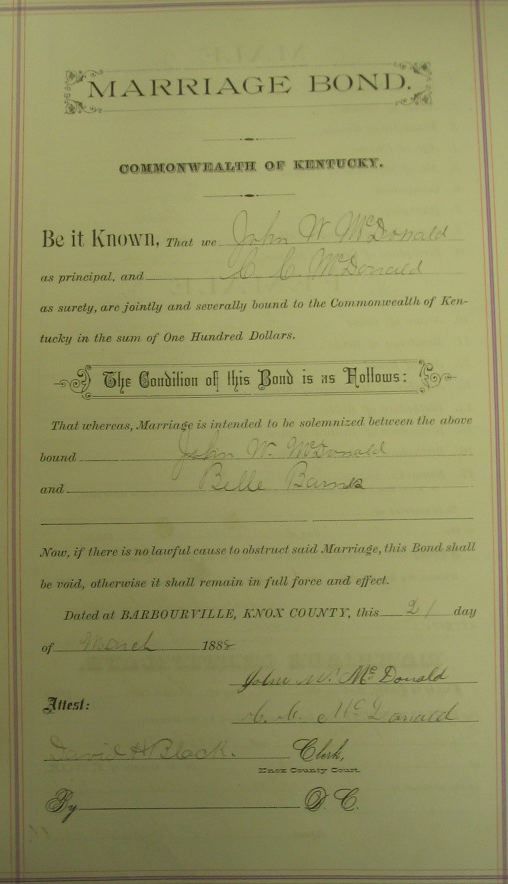 MARRIAGE BOND.
COMMONWEALTH OF KENTUCKY.
Be it Known, That we John W McDonald
as principal, and C. C. McDonald
as surety, are jointly and severally bound to the Commonwealth of Ken-
tucky in the sum of One Hundred Dollars.
The Condition of this Bond is as Follows:
That whereas, Marriage is intended to be solemnized between the above
bound John W. McDonald
and Belle Barnes
Now, if there is no lawful cause to obstruct said Marriage, this Bond shall
be void, otherwise it shall remain in full force and effect.
Dated at BARBOURVILLE, KNOX COUNTY, this 21 day
of March 1888
John W. McDonald
Attest:
McDonald
David H Black. Clerk,
Knox County Court.
By D. C.